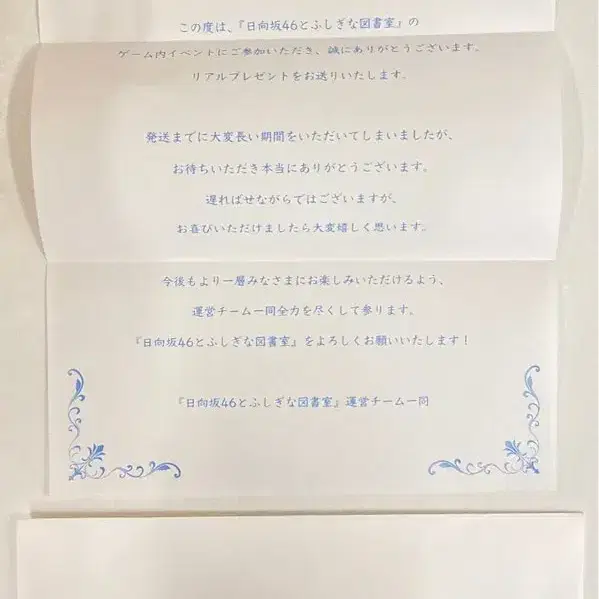 この度は、『日向坂46とふしぎな図書室』の
ゲーム内イベントにご参加いただき、誠にありがとうございます。
リアルプレゼントをお送りいたします。
発送までに大変長い期間をいただいてしまいましたが、
お待ちいただき本当にありがとうございます。
遅ればせながらではございますが、
お喜びいただけましたら大変嬉しく思います。
今後もより一層みなさまにお楽しみいただけるよう、
運営チーム一同全力を尽くして参ります。
『日向坂46とふしぎな図書室』をよろしくお願いいたします！
『日向坂46とふしぎな図書室』運営チーム一同